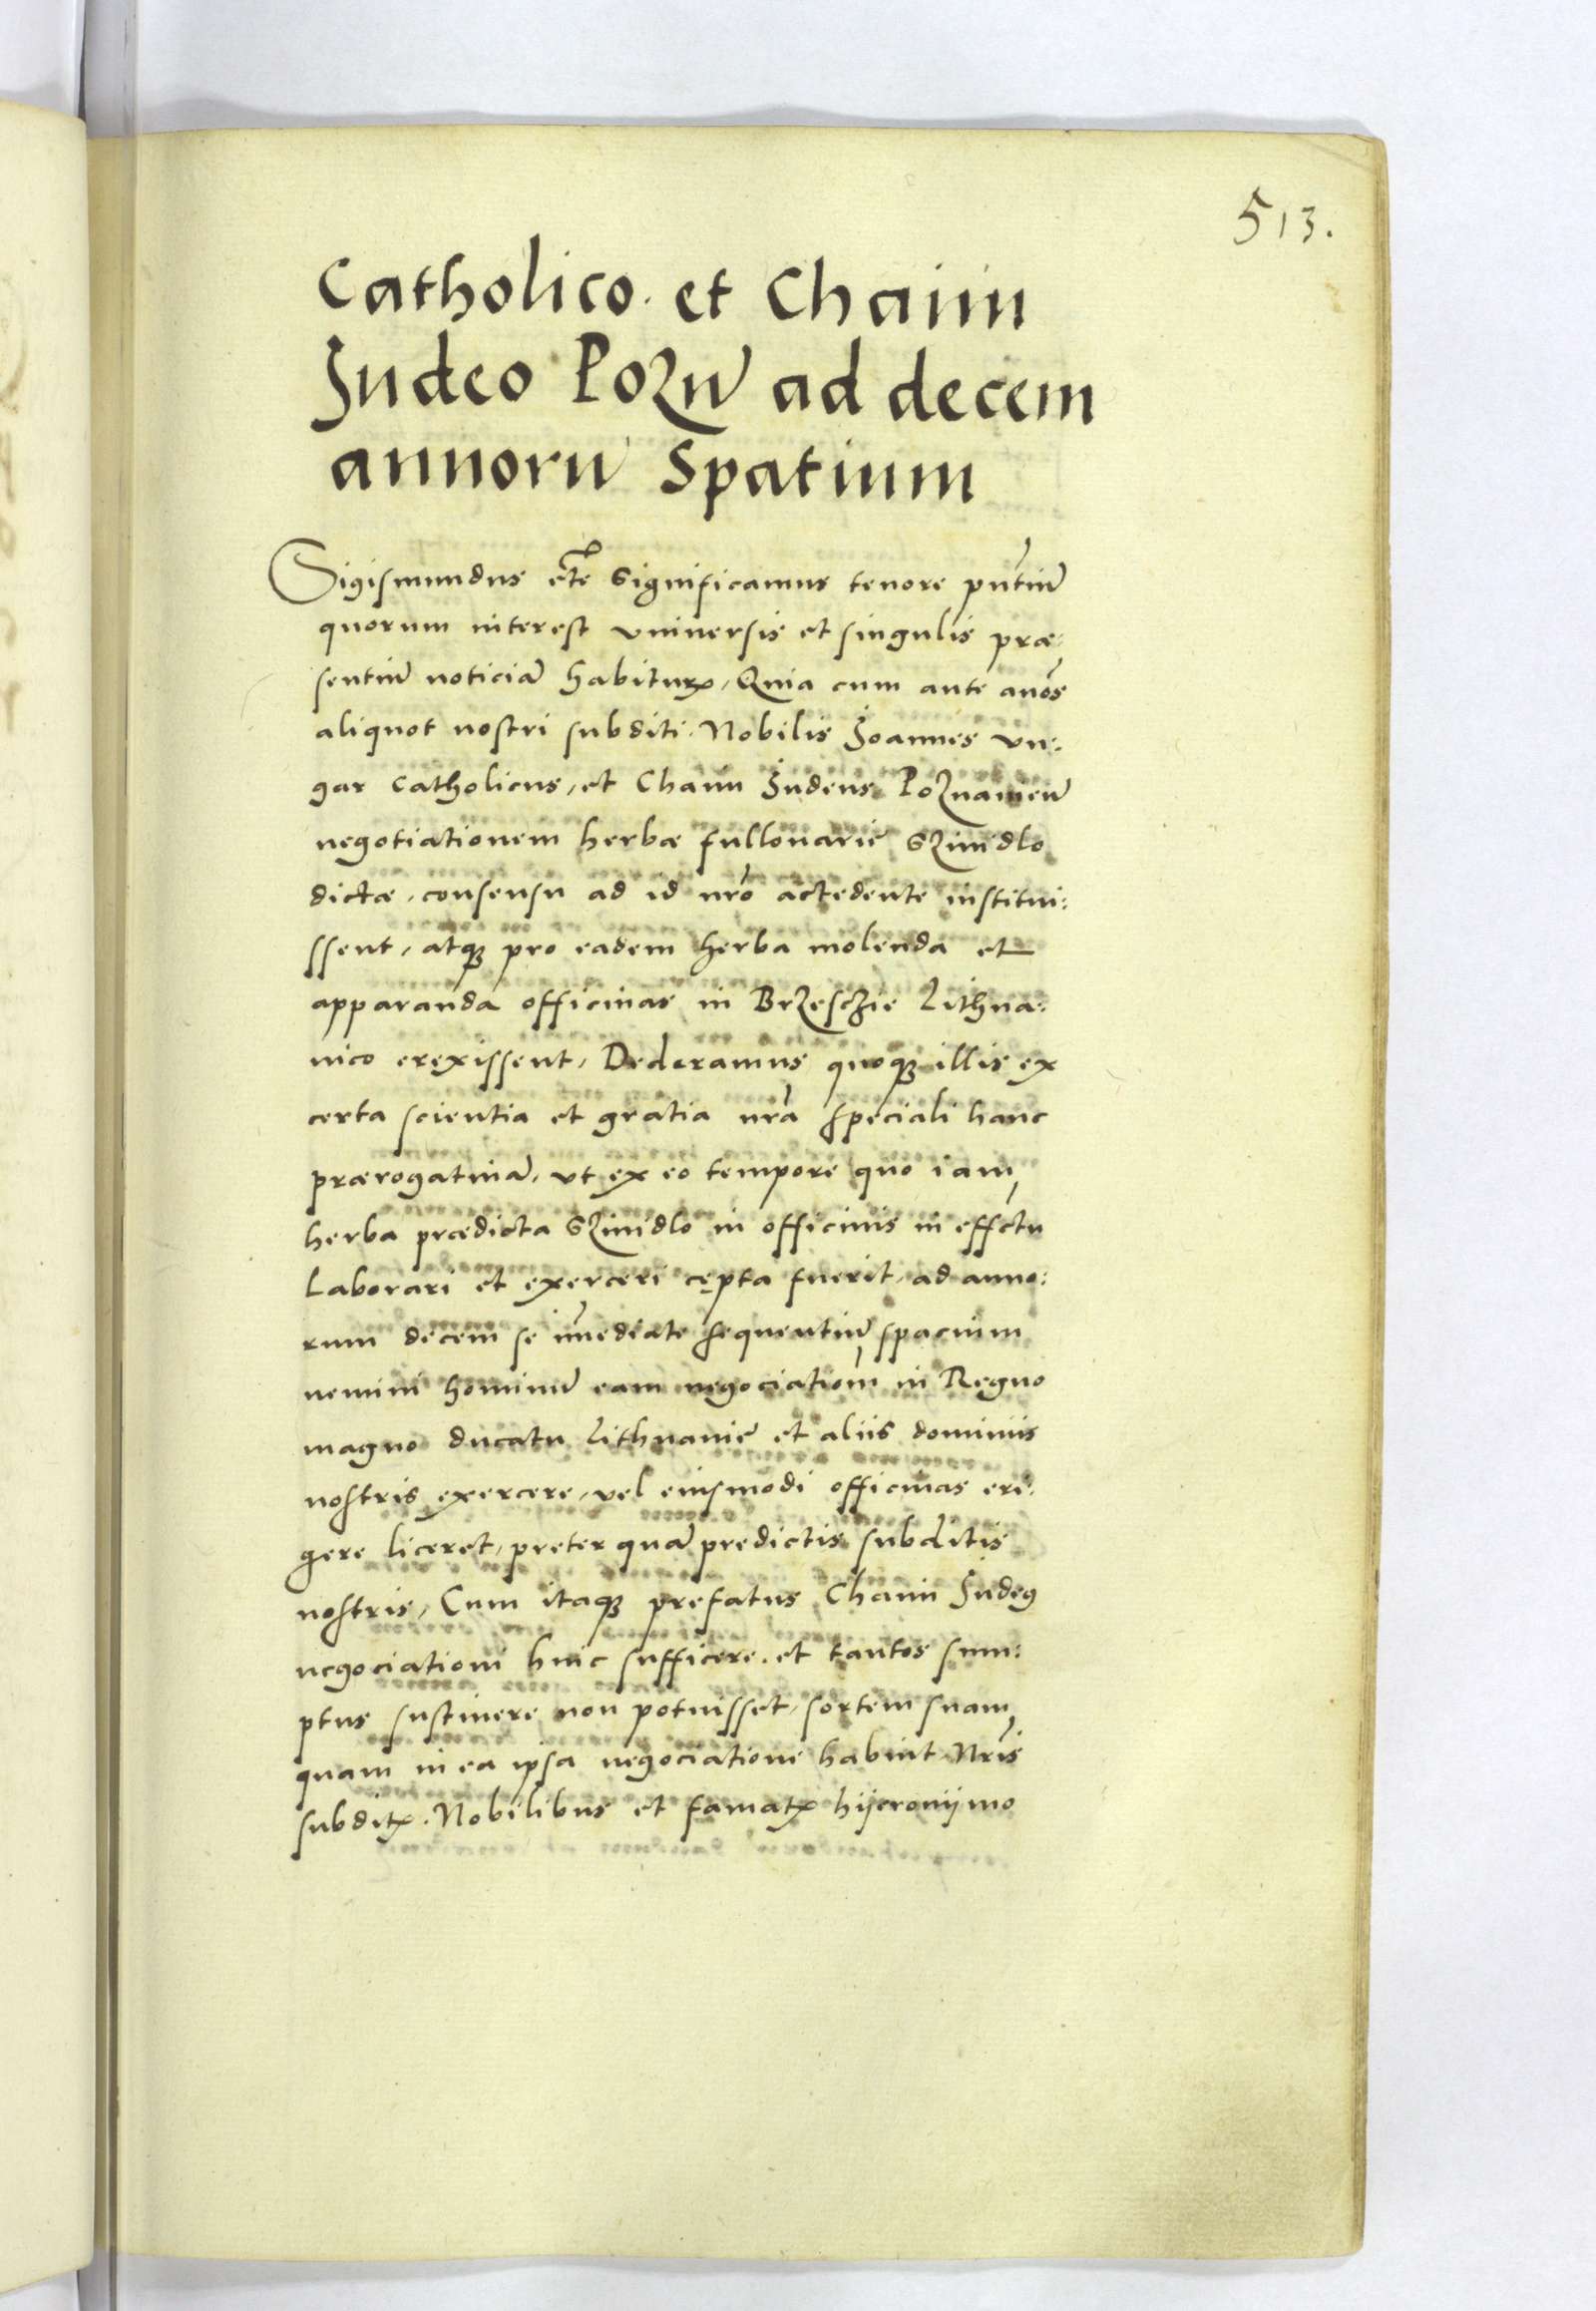 513.
Catholico. et Chaim
Judeo Pozn̄ ad decem
annorū spatium
Sigismundus etc̄ Significamus tenore pn̄tiū
quorum interest vniuersis et singulis præ:
sentiū noticiā habituꝝ, Quia cum ante an̄os
aliquot nostri subditi. Nobilis Joannes Vn:
gar Catholicus, et Chaim Judeus Poznanien̄
negotiationem herbæ fullonarię Szimidlo
dictæ, consensu ad id nr̄o accedente institui:
ssent, atqꝫ pro eadem herba molenda et
apparanda officinas in Brzesczie Lithua:
nico erexissent, Dederamus quoqꝫ illis ex
certa scientia et gratia nr̄a speciali hanc
prærogatiuā, vt ex eo tempore quo iam
herba prædicta Szimidlo in officinis in effc̄tu
Laborari et exerceri cępta fuerit, ad anno:
rum decem se im̄ediate sequentiū spacium
nemini hominū eam negociatiom̄ in Regno
magno ducatu Lithuanię et aliis dominiis
nostris exercere, vel eiusmodi officinas eri:
gere liceret, preter quā predictis subditis
nostris, Cum itaqꝫ prefatus Chaim Judeꝰ
negociationi huic sufficere. et tantos sum:
ptus sustinere non potuisset, sortem suam
quam in ea ipsa negociatione habuit. Nr̄is
subditꝭ. Nobilibus et famatꝭ hijeronijmo